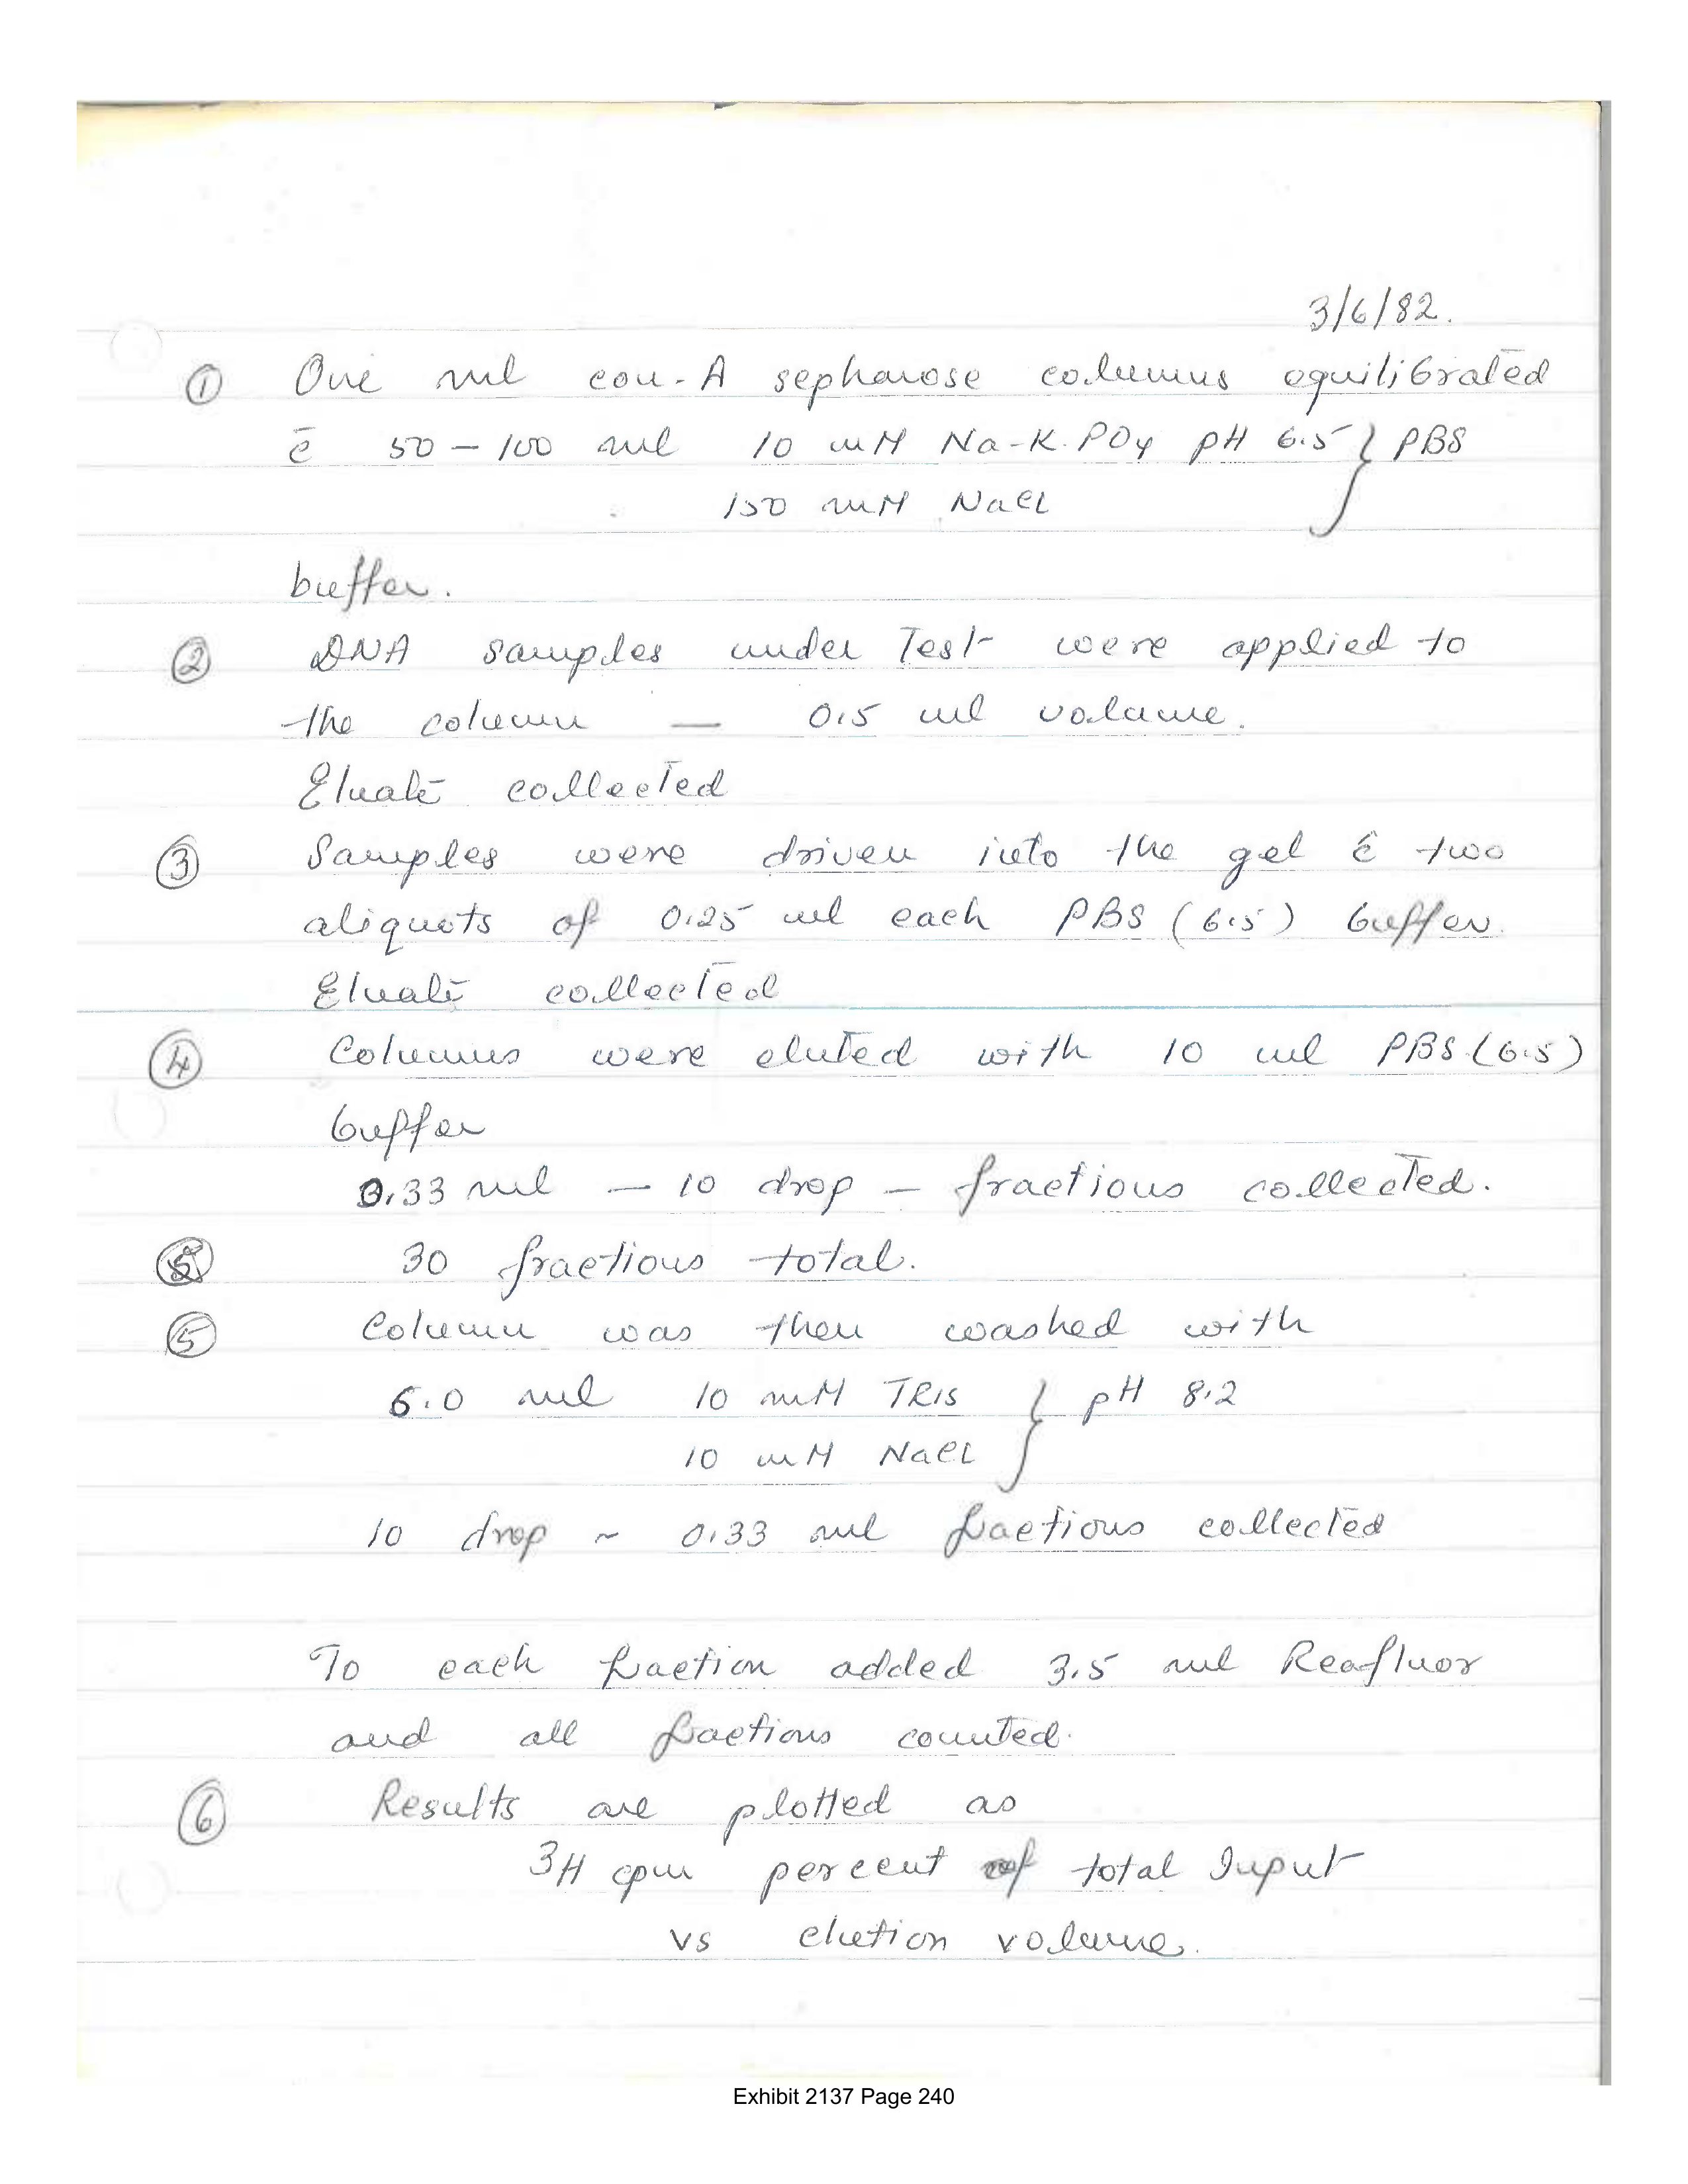 3/6/82.
① One ml con-A sepharose columns equilibrated
c̄ 50 – 100 ml 10 mM Na-K.PO4 pH 6.5 } PBS
150 mM NaCl
buffer.
② DNA samples under Test were applied to
the column — 0.5 ml volume.
Eluate collected
③ Samples were driven into the gel c̄ two
aliquots of 0.25 ml each PBS (6.5) buffer.
Eluate collected
④ Columns were eluted with 10 ml PBS (6.5)
buffer
0.33 ml — 10 drop — fractions collected.
30 fractions total.
⑤ Column was then washed with
6.0 ml 10 mM TRIS } pH 8.2
10 mM NaCl
10 drop ~ 0.33 ml fractions collected
To each fraction added 3.5 ml Reafluor
and all fractions counted.
⑥ Results are plotted as
3H cpm percent of total Input
vs elution volume.
Exhibit 2137 Page 240